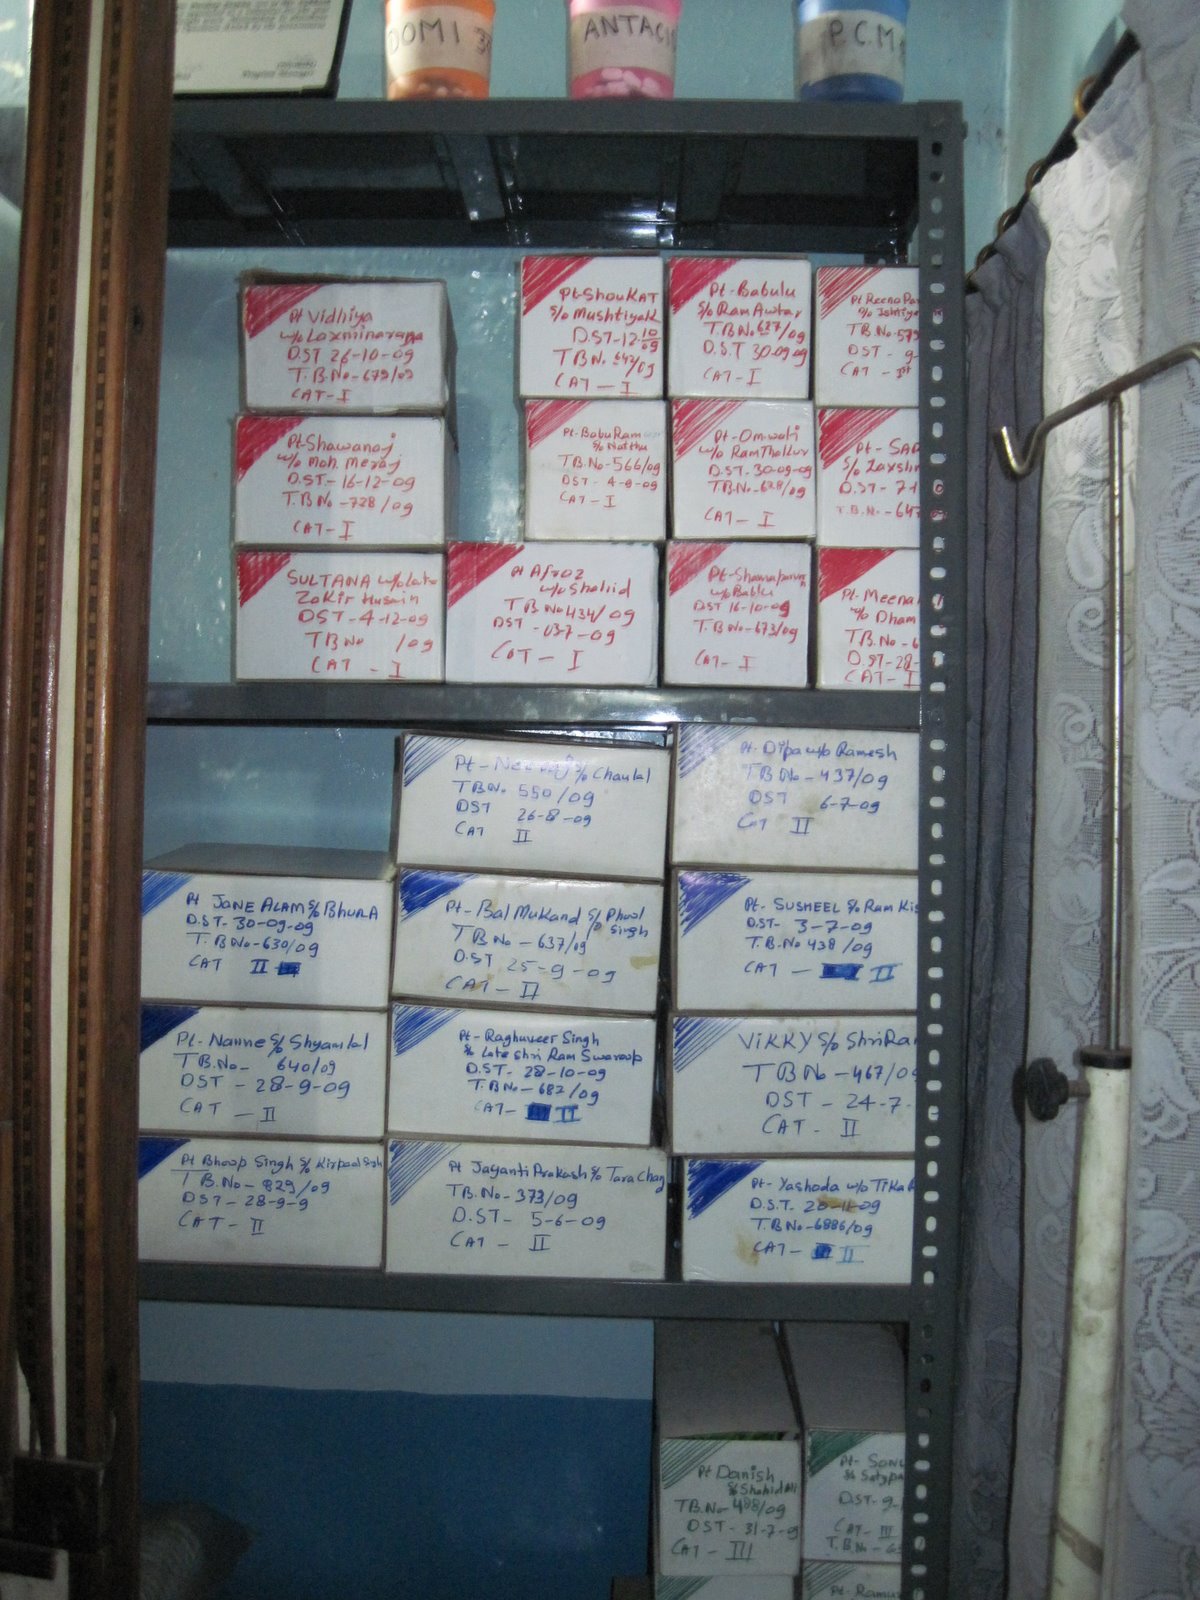 DOMI
ANTACI
P.C.M
Pt Vidhiya
w/o Laxminarayan
D.ST 26-10-09
T.B.No-679/09
CAT-I
Pt-ShouKAT
S/o Mushtiyak
D.ST-12-10/09
TBNo 642/09
CAT-I
Pt-Babulu
S/o Ram Awtar
T.B.No 627/09
D.S.T 30-09-09
CAT-I
Pt Reena
TB.No-579
DST - 9-
CAT-Ist
Pt-Shawanaj
w/o Moh. Meraj
D.ST-16-12-09
T.B.No-728/09
CAT-I
Pt-BabuRam
S/o Natthu
TB.No-566/09
DST-4-9-09
CAT-I
Pt-Omwati
w/o Ram Thakur
D.ST.30-09-09
T.B.No-628/09
CAT-I
Pt-SAR
S/o Laxshm
D.ST-7-1
T.B.N.-647
SULTANA w/o Late
Zakir Husain
DST-4-12-09
TB No /09
CAT-I
Pt Afroz
w/o Shahid
TB No 434/09
DST-03-7-09
CAT-I
w/o Bablu
DST 16-10-09
T.B.No-673/09
CAT-I
Pt-Meena
w/o Dham
TB.No-6
D.ST-28-
CAT-I
Pt- S/o Chaulal
TBNo 550/09
DST 26-8-09
CAT II
Pt-Dipa w/o Ramesh
TBNo-437/09
DST 6-7-09
CAT II
Pt JANE ALAM S/o BHURA
D.ST-30-09-09
T.BNo-630/09
CAT II
Pt-Bal Mukand S/o Phool
Singh
TBNo-637/09
DST 25-9-09
CAT-II
Pt-SUSHEEL S/o Ram Kis
DST-3-7-09
T.B.No 438/09
CAT-II
Pt-Nanne S/o Shyamlal
TB.No-640/09
DST-28-9-09
CAT-II
Pt-Raghuveer Singh
S/o Late Shri Ram Swaroop
D.ST-28-10-09
T.BNo-682/09
CAT-II
VIKKY S/o Shri Ra
TBNo-467/09
DST-24-7-
CAT-II
Pt Bhoop Singh S/o Kirpaal Singh
TB.No-829/09
DST-28-9-9
CAT-II
Pt Jayanti Prakash S/o Tara Chand
TB.No-373/09
D.ST-5-6-09
CAT-II
Pt-Yashoda w/o TIKA
D.S.T. 20-11-09
T.BNo-6886/09
CAT-II
Pt Danish
S/o Shahid Ali
TB.No-488/09
DST-31-7-9
CAT-III
Pt-Sonu
S/o Satypa
D.ST-9-
CAT-III
T.B.No-6
Pt-Ramu